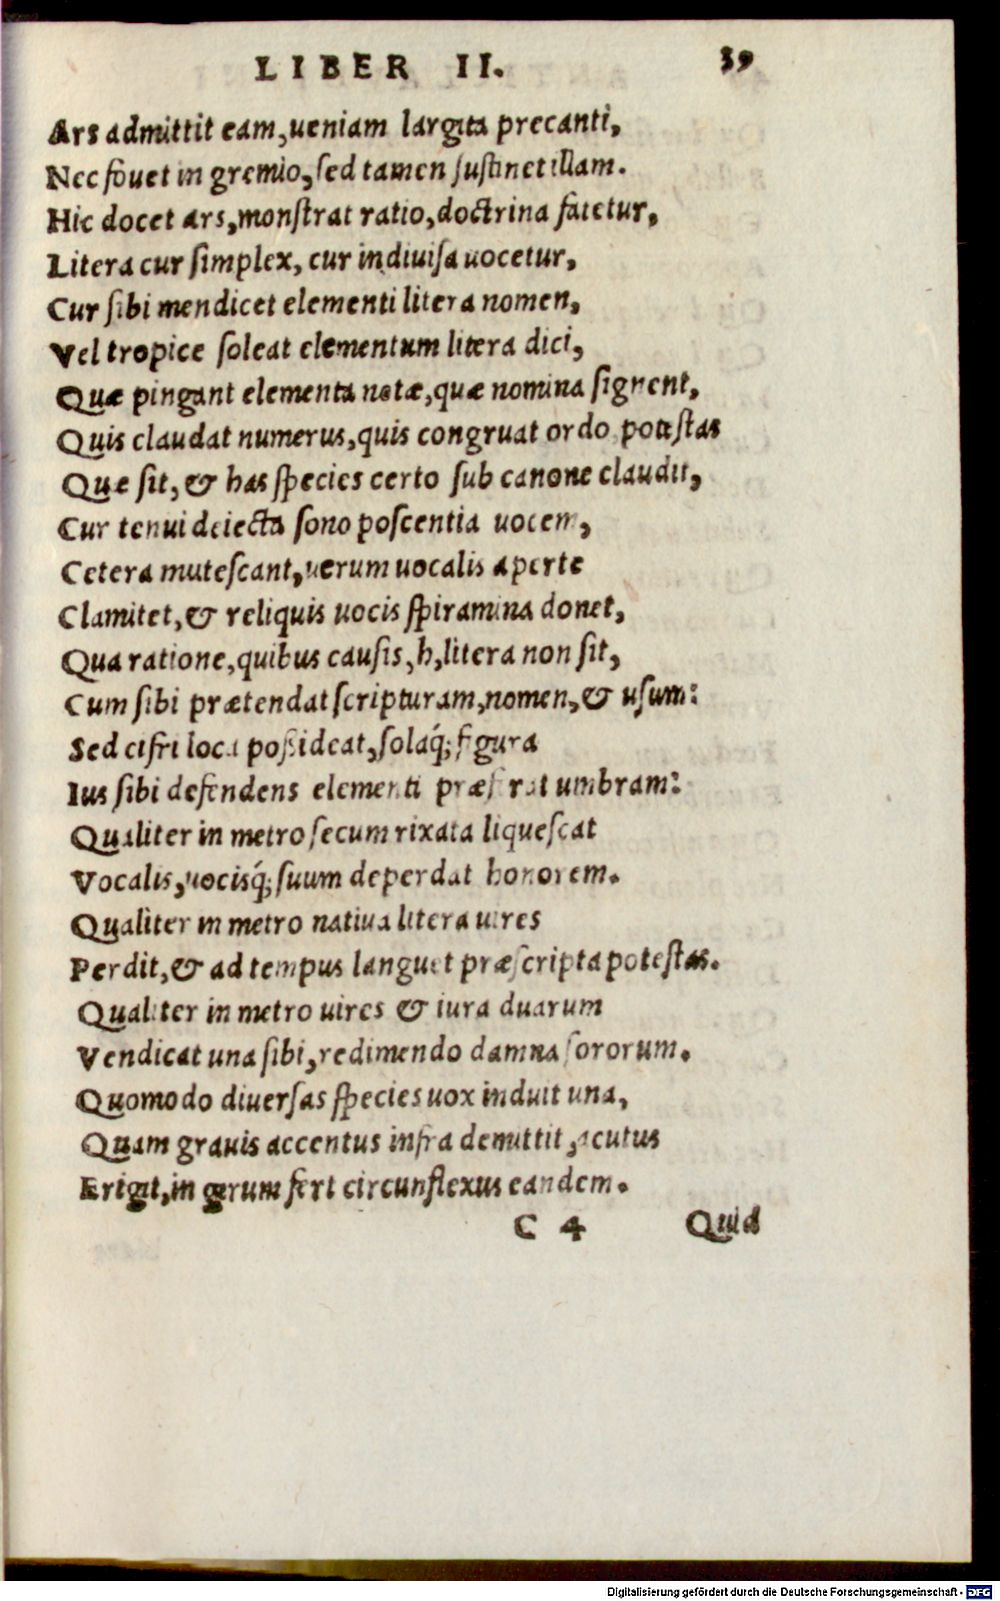 LIBER II. 39
Ars admittit eam, ueniam largita precanti,
Nec fouet in gremio, sed tamen sustinet illam.
Hic docet ars, monstrat ratio, doctrina fatetur,
Litera cur simplex, cur indiuisa uocetur,
Cur sibi mendicet elementi litera nomen,
Vel tropice soleat elementum litera dici,
Quæ pingant elementa notæ, quæ nomina signent,
Quis claudat numerus, quis congruat ordo, potestas
Quæ sit, & has species certo sub canone claudit,
Cur tenui deiecta sono poscentia uocem,
Cetera mutescant, uerum uocalis aperte
Clamitet, & reliquis uocis spiramina donet,
Qua ratione, quibus causis, h, litera non sit,
Cum sibi prætendat scripturam, nomen, & usum:
Sed cifri loca possideat, solaq́; figura
Ius sibi defendens elementi præferat umbram:
Qualiter in metro secum rixata liquescat
Vocalis, uocisq́; suum deperdat honorem.
Qualiter in metro natiua litera uires
Perdit, & ad tempus languet præscripta potestas.
Qualiter in metro uires & iura duarum
Vendicat una sibi, redimendo damna sororum.
Quomodo diuersas species uox induit una,
Quam grauis accentus infra demittit, acutus
Erigit, in gyrum fert circunflexus eandem.
C 4 Quid
Digitalisierung gefördert durch die Deutsche Forschungsgemeinschaft - DFG